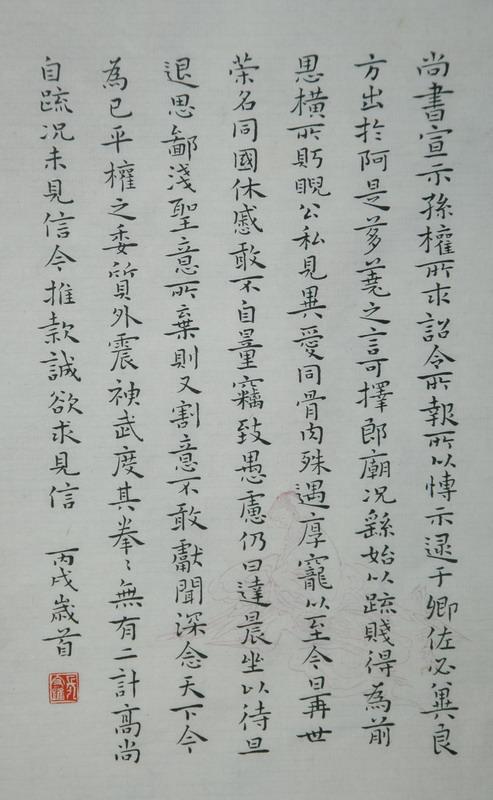 尚書宣示孫權所求詔令所報所以博示逮于卿佐必冀良
方出於阿是芻蕘之言可擇郎廟況繇始以疏賤得為前
恩橫所眄睨公私見異愛同骨肉殊遇厚寵以至今日再世
榮名同國休慼敢不自量竊致愚慮仍日達晨坐以待旦
退思鄙淺聖意所棄則又割意不敢獻聞深念天下今
為已平權之委質外震神武度其拳〻無有二計高尚
自疏況未見信今推款誠欲求見信 丙戌歲首